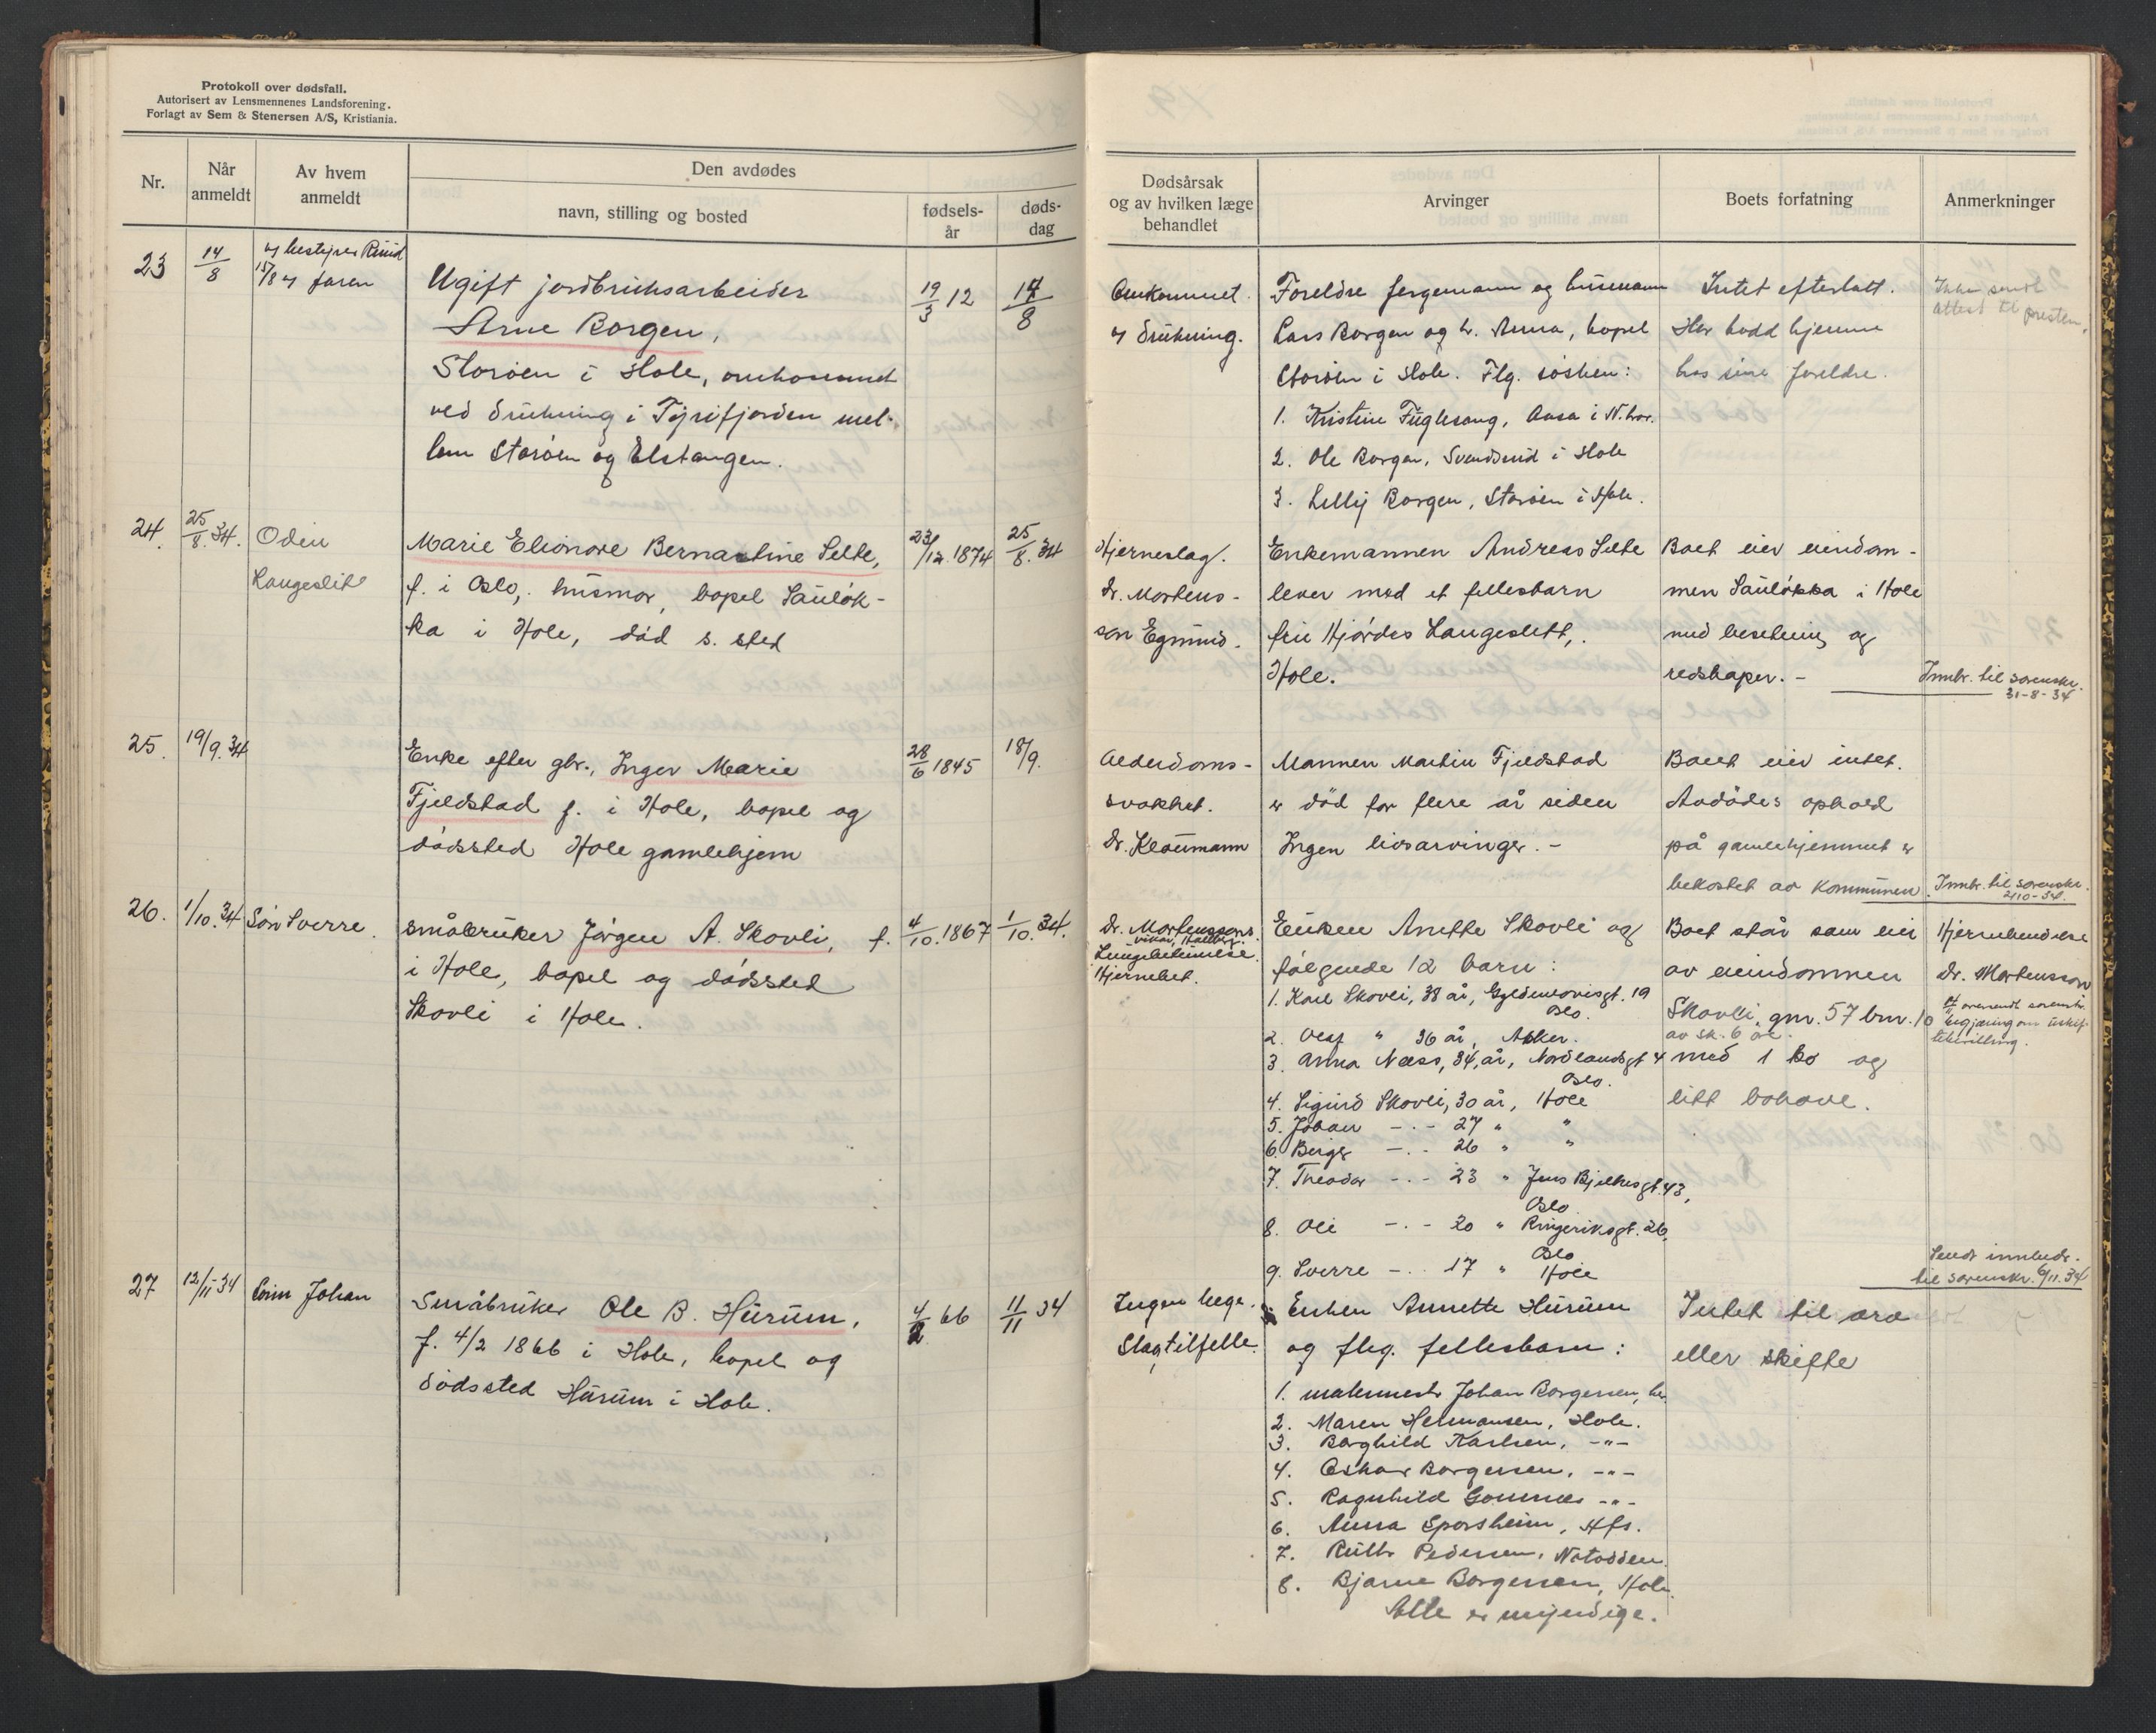 Protokoll over dødsfall.
Autorisert av Lensmennenes Landsforening.
Forlagt av Sem & Stenersen A/S, Kristiania.
Nr.
Når anmeldt
Av hvem anmeldt
Den avdødes
navn, stilling og bosted
fødsels-år
døds-dag
Dødsårsak og av hvilken læge behandlet
Arvinger
Boets forfatning
Anmerkninger
23
14/8
av bestyrer Ruud
15/8 av faren
Ugift jordbruksarbeider
Arne Borgen,
Storøen i Hole, omkommet
ved drukning i Tyrifjorden mel-
lem Storøen og Elstangen.
19/3 12
14/8
Omkommet
v drukning.
Foreldre fergemann og husmann
Lars Borgen og h. Anna, bopel
Storøen i Hole. Flg. søsken:
1. Kristine Fuglesang, Aasa i N.
2. Ole Borgen, Svendsrud i Hole
3. Lilly Borgen, Storøen i Hole.
Intet efterlatt.
Har bodd hjemme
hos sine foreldre.
Ikke sendt
attest til presten.
24.
25/8.34.
Odin
Langeslitt
Marie Elionore Bernantine Selte,
f. i Oslo, husmor, bopel Sauløk-
ka i Hole, død s. sted
23/12.1874
25/8.34
Hjerneslag.
dr. Mortens-
son Egnund.
Enkemannen Andreas Selte
lever med et fellesbarn
frue Hjørdis Langeslett,
Hole.
Boet eier eiendom-
men Sauløkka i Hole
med besetning og
redskaper. -
Innb. til sorenskr.
31-8-34
25.
19/9.34
Enke efter gbr., Inger Marie
Fjeldstad f. i Hole, bopel og
dødssted Hole gamlehjem
28/6 1845
18/9.
Alderdoms-
svakhet.
dr. Klaumann
Mannen Martin Fjeldstad
er død for flere år siden
Ingen livsarvinger. -
Boet eier intet.
Avdødes ophold
på gamlehjemmet er
bekostet av kommunen.
Innb. til sorenskr.
2/10-34.
26.
1/10.34
Søn Sverre.
småbruker Jørgen A. Skovli, f.
i Hole, bopel og dødssted
Skovli i Hole.
4/10.1867
1/10.34.
dr. Mortenssons
vikar,
Lungebetennelse.
Hjernebet.
Enken Anette Skovli og
følgende 12 barn:
1. Karl Skovli, 38 år, Gyldenløvesgt. 19
Oslo.
2. Olaf " 36 år, Asker.
3. Anna Næss, 34, år, Nordlandsgt 4
Oslo.
4. Sigurd Skovli, 30 år, Hole
5. Johan -.- 27 " "
6. Birger -.- 26 " "
7. Theodor -.- 23 " Jens Bjelkesgt 43,
Oslo
8. Ole -.- 20 " Ringeriksgt. 26,
Oslo
9. Sverre -.- 17 " Hole
Boet står som eier
av eiendommen
Skovli, gnr. 57 bnr. 10
av sk. 6 øre
med 1 ko og
litt bohave.
Hjernebetendelse
dr. Mortensson
oversendt sorenskr.
begjæring om uskif-
tebevilling.
Sendt innberetn.
til sorenskr. 6/11.34
27
12/11-34
Sønn Johan
Småbruker Ole B. Hurum,
f. 4/2 1866 i Hole, bopel og
dødssted Hurum i Hole.
4/2 66
11/11 34
Ingen læge.
Slagtilfelle.
Enken Annette Hurum
og flg. fellesbarn:
1. malermester Johan Borgersen, her
2. Maren Hermansen, Hole.
3. Borghild Karlsen, -"-
4. Oskar Borgersen, -"-
5. Ragnhild Gomnæs -"-
6. Anna Sporsheim, Hfs.
7. Ruth Pedersen, Notodden.
8. Bjarne Borgersen, Hole.
Alle er myndige.
Intet til arv
eller skifte